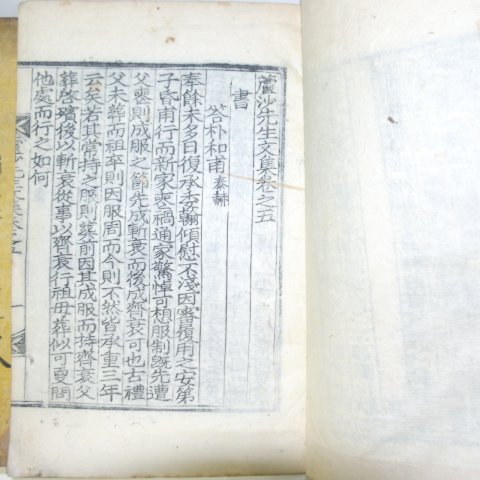 蘆沙先生文集卷之五
書
答朴和甫泰赫
奉餘未多日復承委翰傾慰不淺因審履用之安第
子昏甫行而新家喪禍通家驚悼可想服制旣先遭
父喪則成服之節先成斬衰而後成齊衰可也古禮
父未葬而祖卒則因服周而今則不然皆承重三年
云矣若其常持之服則葬前因其成服而持齊衰父
葬啓殯後以斬衰從事以齊衰行祖母葬似可更問
他處而行之如何